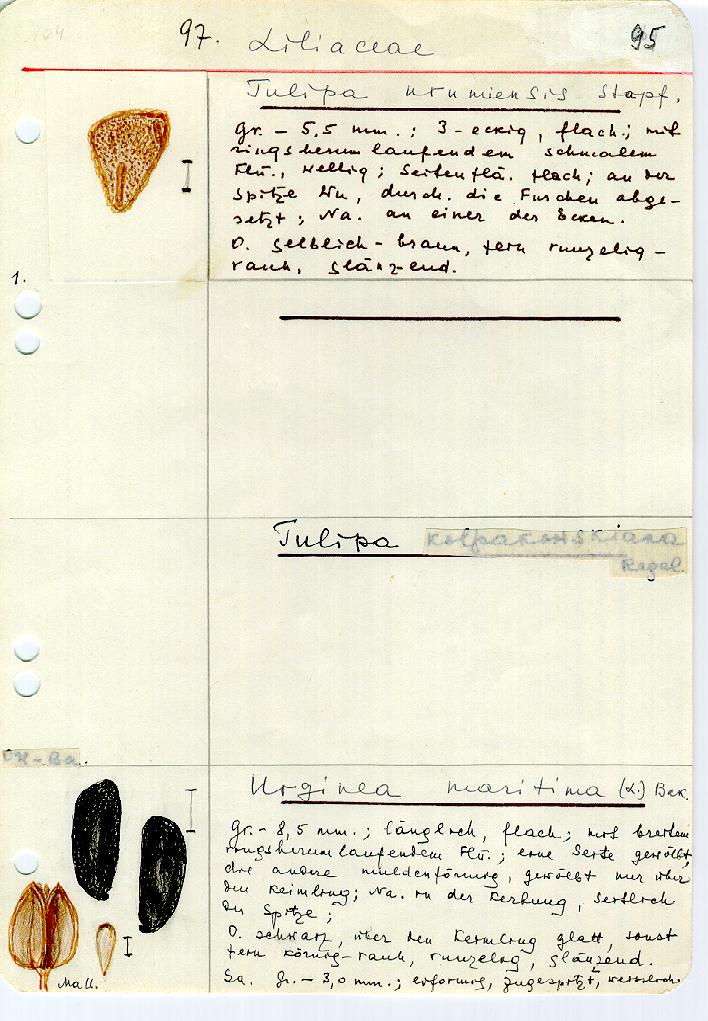 97. Liliaceae 95
Tulipa urumiensis Stapf.
Gr. – 5,5 mm.; 3-eckig, flach; mit
ringsherumlaufendem schmalem
Flü., wellig; Seitenflä. flach; an der
Spitze Wu, durch. die Furchen abge-
setzt; Na. an einer der Ecken.
O. gelblich-braun, fein runzelig-
rauh, glänzend.
1.
Tulipa Kolpakowskiana
Regel.
Urginea maritima (L.) Bak.
Gr. – 8,5 mm.; länglich, flach; mit breitem
ringsherumlaufendem Flü.; eine Seite gewölbt,
die andere muldenförmig, gewölbt nur über
den Keimling; Na. in der Kerbung, seitlich
der Spitze;
O. schwarz, über den Keimling glatt, sonst
fein körnig-rauh, runzelig, glänzend.
Sa. Gr. – 3,0 mm.; eiförmig, zugespitzt, weisslich.